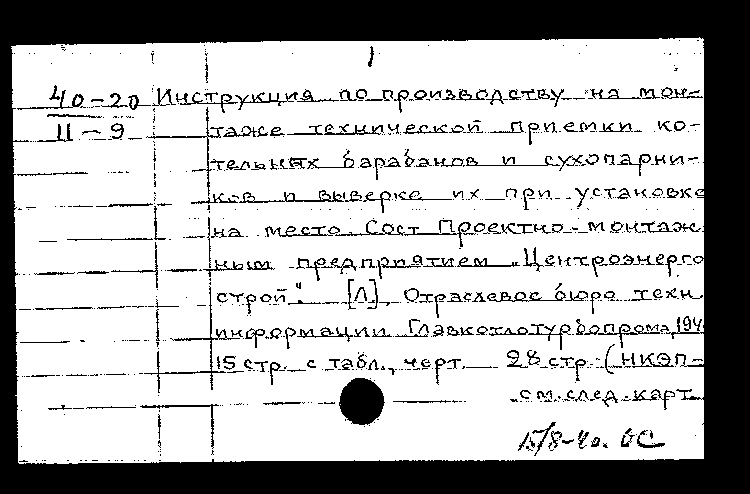 1
40-20 Инструкция по производству на мон-
11-9 таже технической приемки ко-
тельных барабанов и сухопарни-
ков и выверке их при установке
на место. Сост Проектно-монтаж
ным предприятием „Центроэнерго
строй". [Л], Отраслевое бюро техн.
информации Главкотлотурбопрома, 194
15 стр. с табл., черт. 28 стр. (НКЭП-
см. след. карт.
15/8-40. ОС